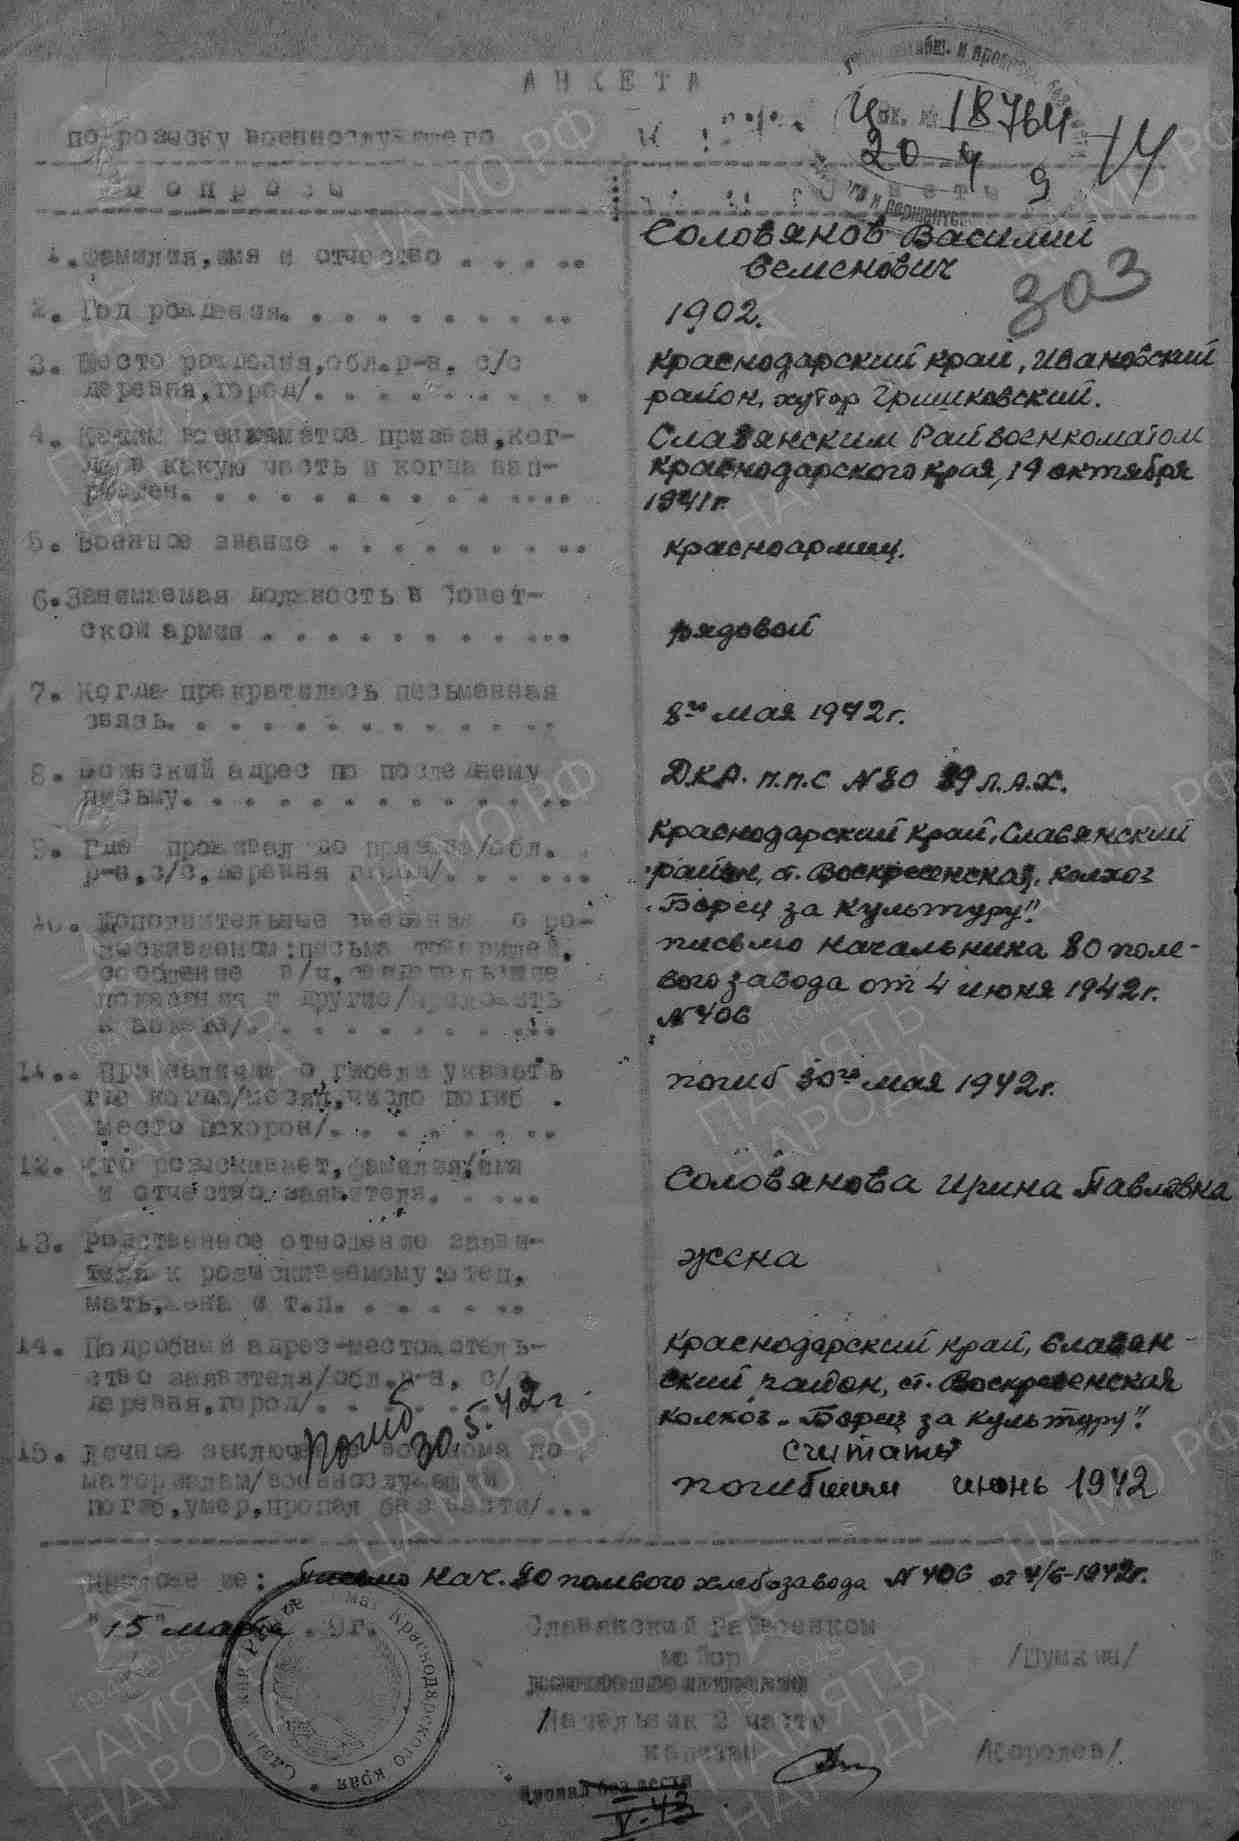 АНКЕТА
по розыску военнослужащего
Вх. № 18764
20 4 9
14
Вопросы
1. Фамилия, имя и отчество . . . . . .
Соловянов Василий
Семенович
303
2. Год рождения. . . . . . . . . . .
1902.
3. Место рождения, обл. р-н, с/с
деревня, город/. . . . . . . . . .
Краснодарский край, Ивановский
район, хутор Гришковский.
4. Каким военкоматом призван, ког-
да в какую часть и когда нап-
равлен. . . . . . . . . . . . . . .
Славянским Райвоенкоматом
Краснодарского края, 19 октября
1941 г.
5. Военное звание . . . . . . . . .
красноармиец.
6. Занимаемая должность в Совет-
ской армии . . . . . . . . . . . .
рядовой
7. Когда прекратилась письменная
связь. . . . . . . . . . . . .
8го мая 1942 г.
8. Воинский адрес по последнему
письму. . . . . . . . . . . . . .
Д.К.А. п.п.с N 80 89 П.А.Х.
9. Где проживал до призыва/обл.
р-н, с/с, деревня город/. . . . . . .
Краснодарский край, Славянский
район, ст. Воскресенская, колхоз
„Борец за культуру"!
10. Дополнительные сведения о ро-
зыскиваемом: письма товарищей,
сообщение в/ч, свидетельские
показания и другие/приложить
к анкете/. . . . . . . . . . . .
письмо начальника 80 поле-
вого завода от 4 июня 1942 г.
N 406
11. При наличии о гибели указать
где когда/месяц, число погиб .
место похорон/. . . . . . . . .
погиб 30го мая 1942 г.
12. Кто розыскивает, фамилия, имя
и отчество заявителя. . . . . .
Соловянова Ирина Павловна
13. Родственное отношение заяви-
теля к розыскиваемому: отец,
мать, жена и т.п. . . . . . . .
жена
14. Подробный адрес-местожитель-
ство заявителя/обл. р-н, с/с
деревня, город/. . . . . . .
Краснодарский край, Славян-
ский район, ст. Воскресенская
колхоз „Борец за культуру"!
погиб
30.5.42 г
15. Личное заключение военкома по
материалам/военнослужащий
погиб, умер, пропал без вести/. . .
считать
погибшим июнь 1942
Приложение: Письмо нач. 80 полевого хлебозавода N 406 от 4/6-1942 г.
"15" марта . 9 г.
Славянский Райвоенком
майор /Шумкин/
Начальник 2 части
капитан /Королев/
Славянский Краснодарского края
Пропал без вести
V-43